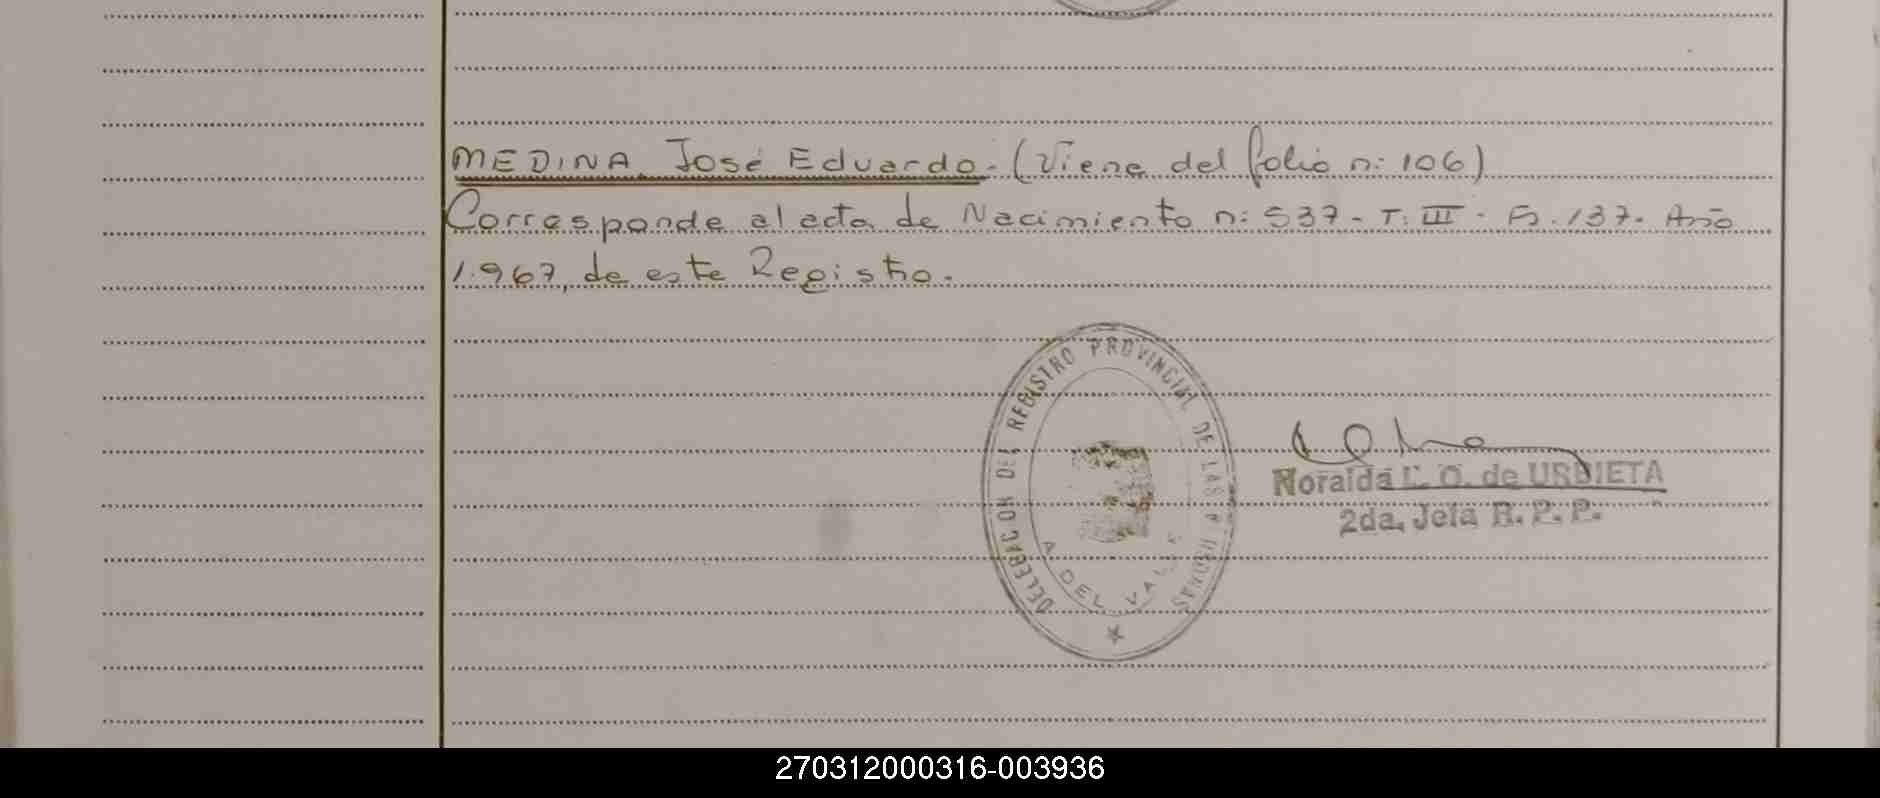 MEDINA, José Eduardo. (Viene del folio n: 106)
Corresponde al acta de Nacimiento n: 537 - T: III - Fs. 137. Año
1.967, de este Registro.
DELEGACION DEL REGISTRO PROVINCIAL DE LAS PERSONAS
A. DEL VALLE
Noraida L. O. de URBIETA
2da. Jefa R. P. P.
270312000316-003936